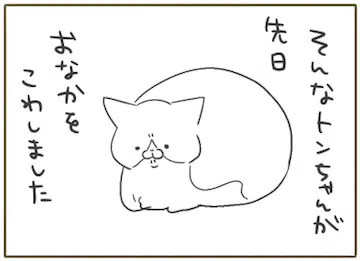 そんなトンちゃんが
先日
おなかを
こわしました